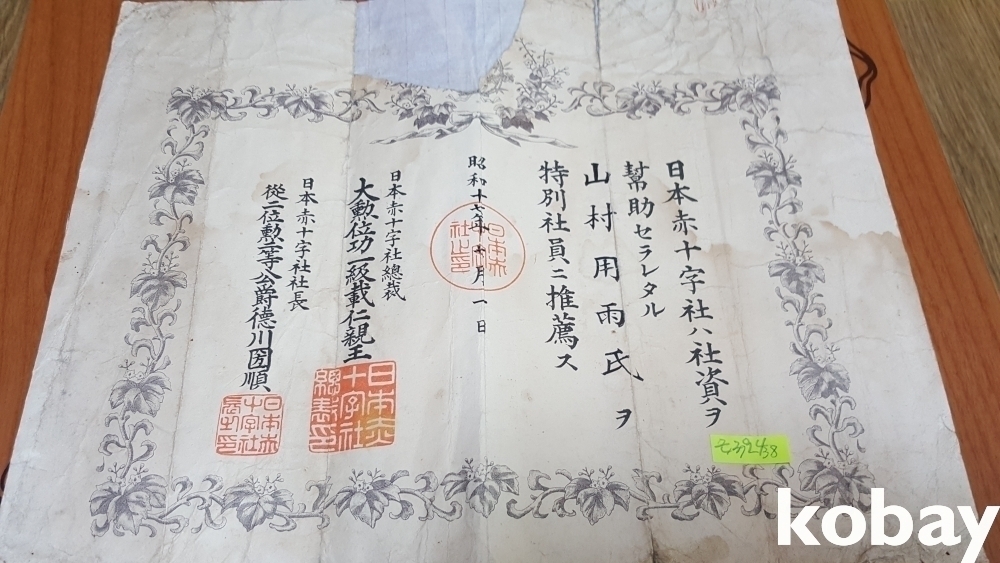 日本赤十字社ハ社資ヲ
幫助セラレタル
山村用雨氏ヲ
特別社員ニ推薦ス
昭和十六年七月一日
日本赤十字社總裁
大勲位功一級載仁親王
日本赤十字社社長
從二位勲一等公爵德川圀順
日本赤十字社總裁印
日本赤十字社長之印
日本赤十字社之印
kobay